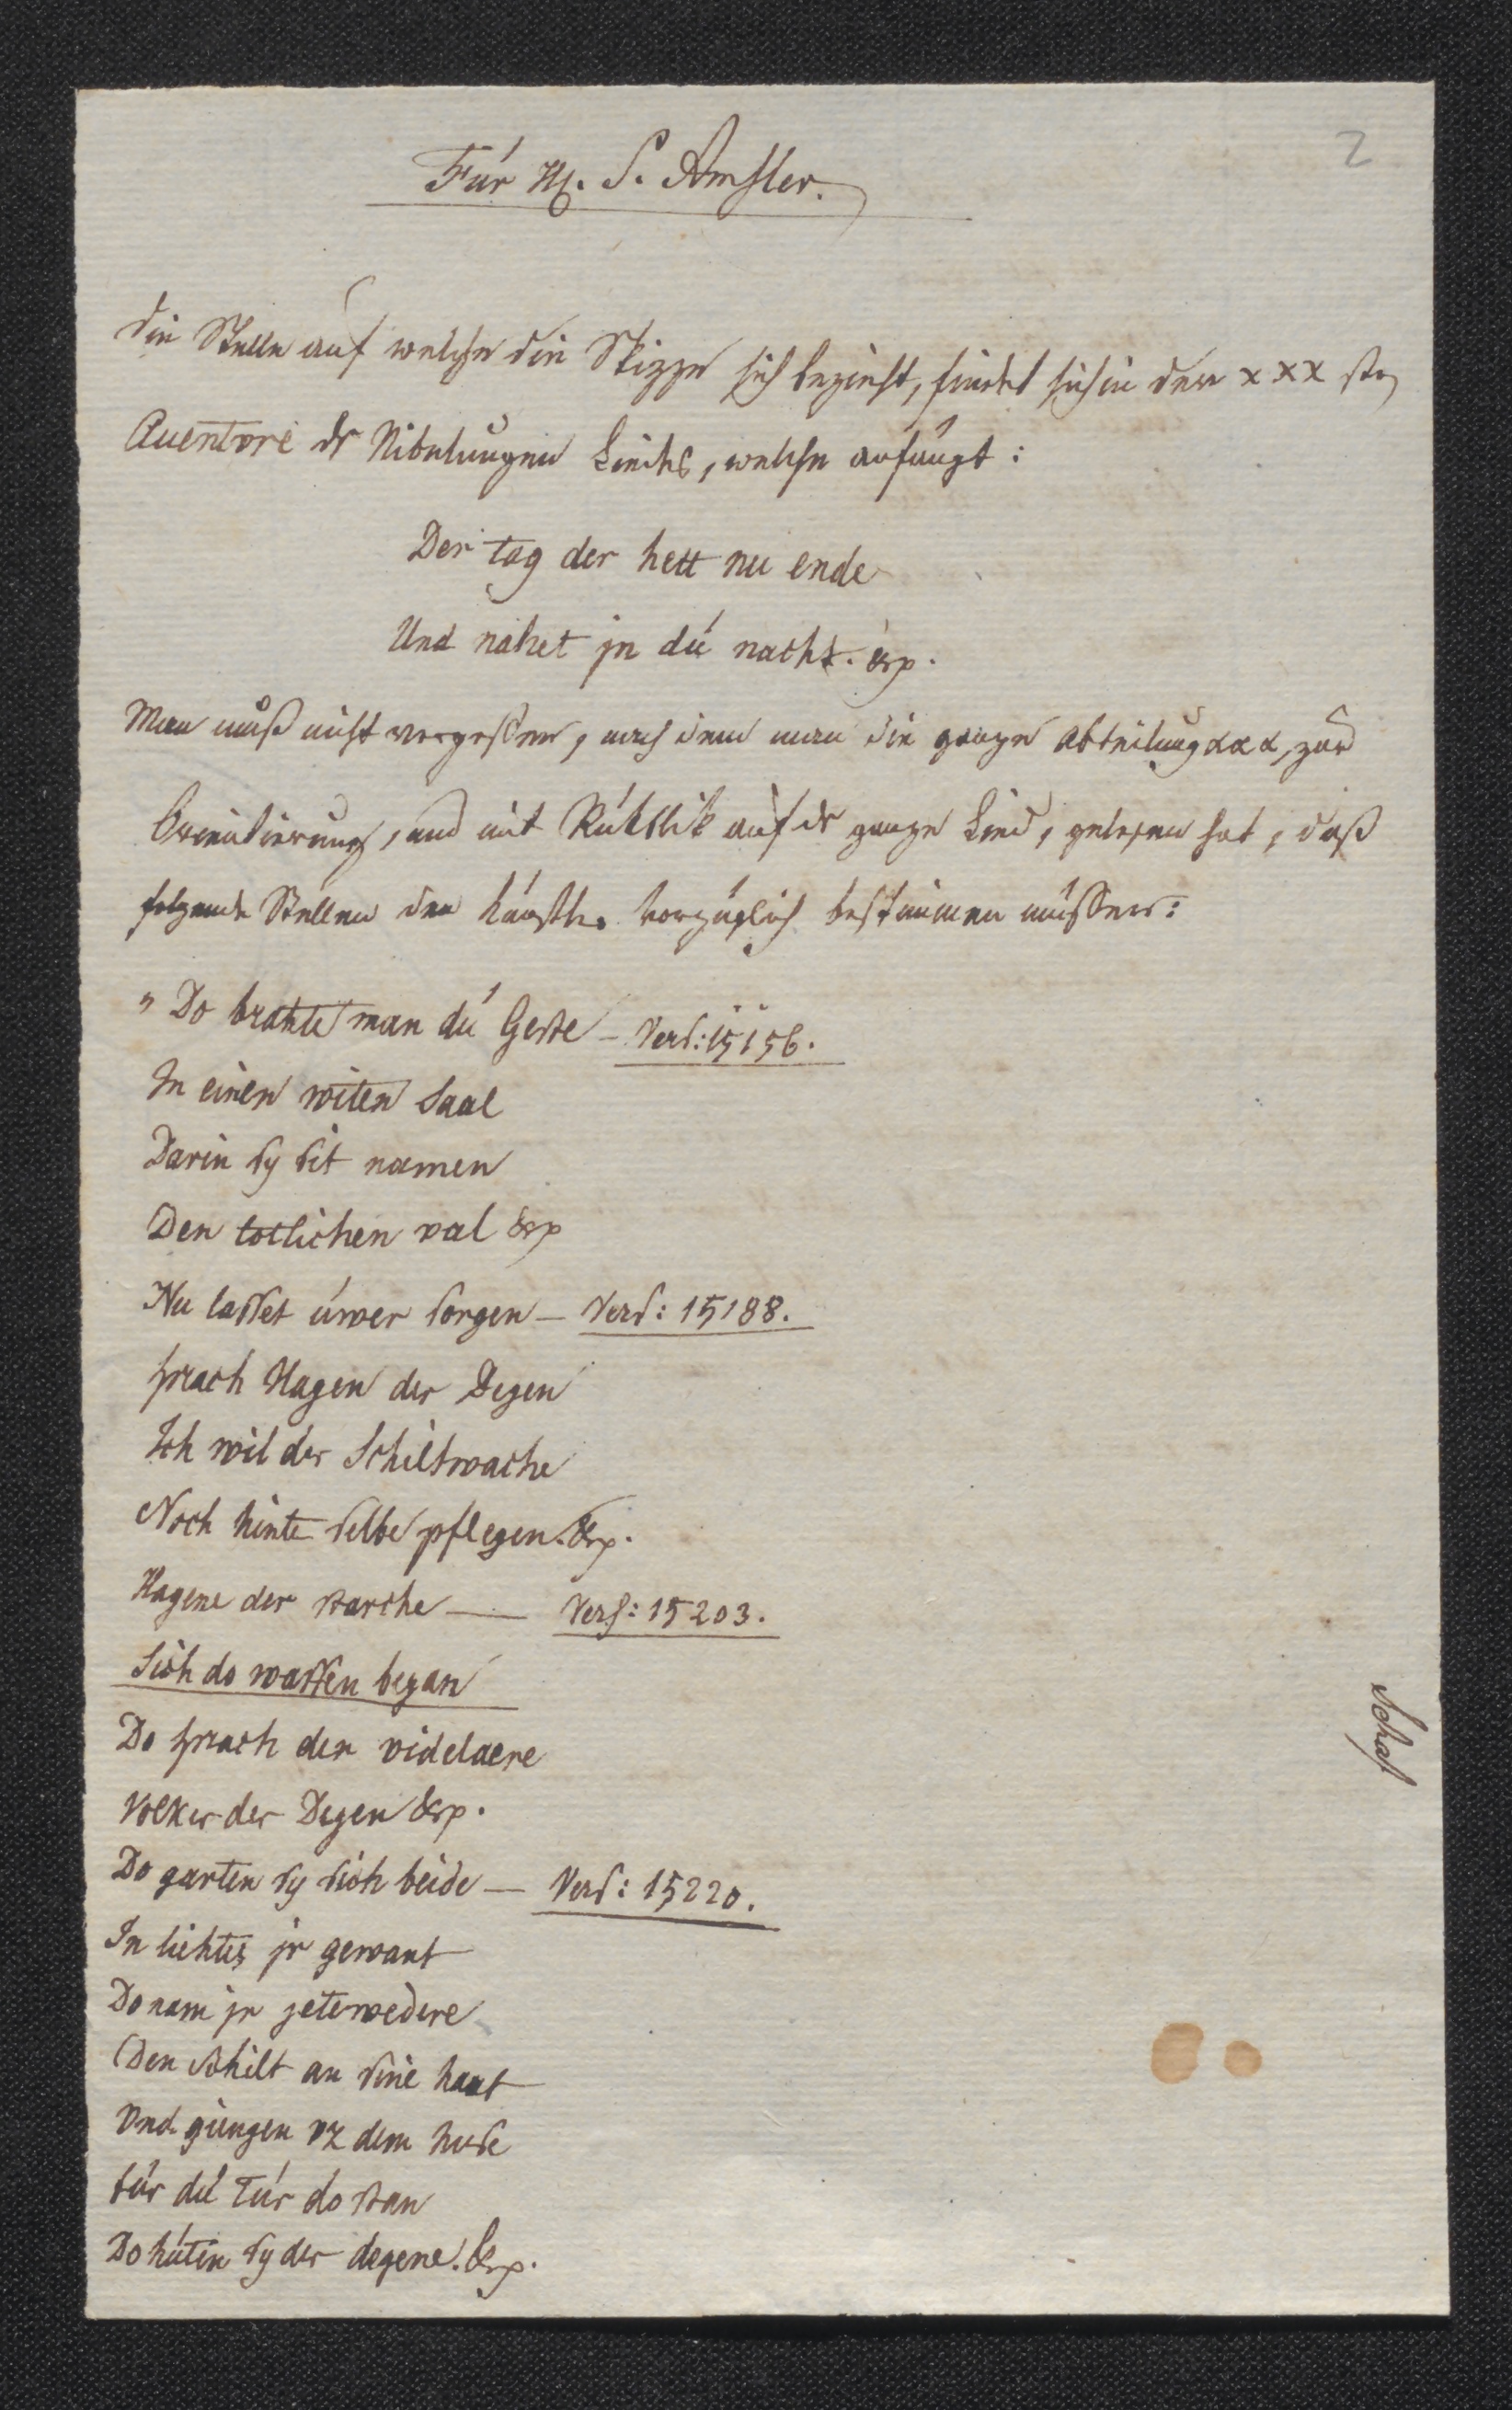 2
Für H. S. Amsler.
Die Stelle auf welche die Skizze sich bezieht, findet sich in der XXX sten
Auentvre der Nibelungen Liedes, welche anfängt:
Der tag der hett nu ende
Und nahet jn dú nacht. &rp.
Man muß nicht vergessen, nach dem man die ganze Abteilung XXX, zur
Orientierung, und mit Rükblik auf das ganze Lied, gelesen hat, daß
folgende Stellen den Künstler vorzüglich bestimmen müssen:
„Do brahte man dú Geste – Vers: 15156.
In einen witen Saal
Darin sy sit namen
Den totlichen val &rp
Nu lasset úwer sorgen – Vers: 15188.
sprach Hagen der Degen
Ich wil der Schiltwache
Noch hinte selbe pflegen. &rp.
Hagene der starche — Vers: 15203.
Sich do waffen began
Do sprach der videlaere
Volker der Degen &rp.
Do garten sy sich beide — Vers: 15220.
In liehtes jr gewant
Do nam jr jetewedere
Den schilt an sine hant
Vnd giengen vz dem huse
für dú Túr do stan
Do húten sy der degene. &rp.
Schaf